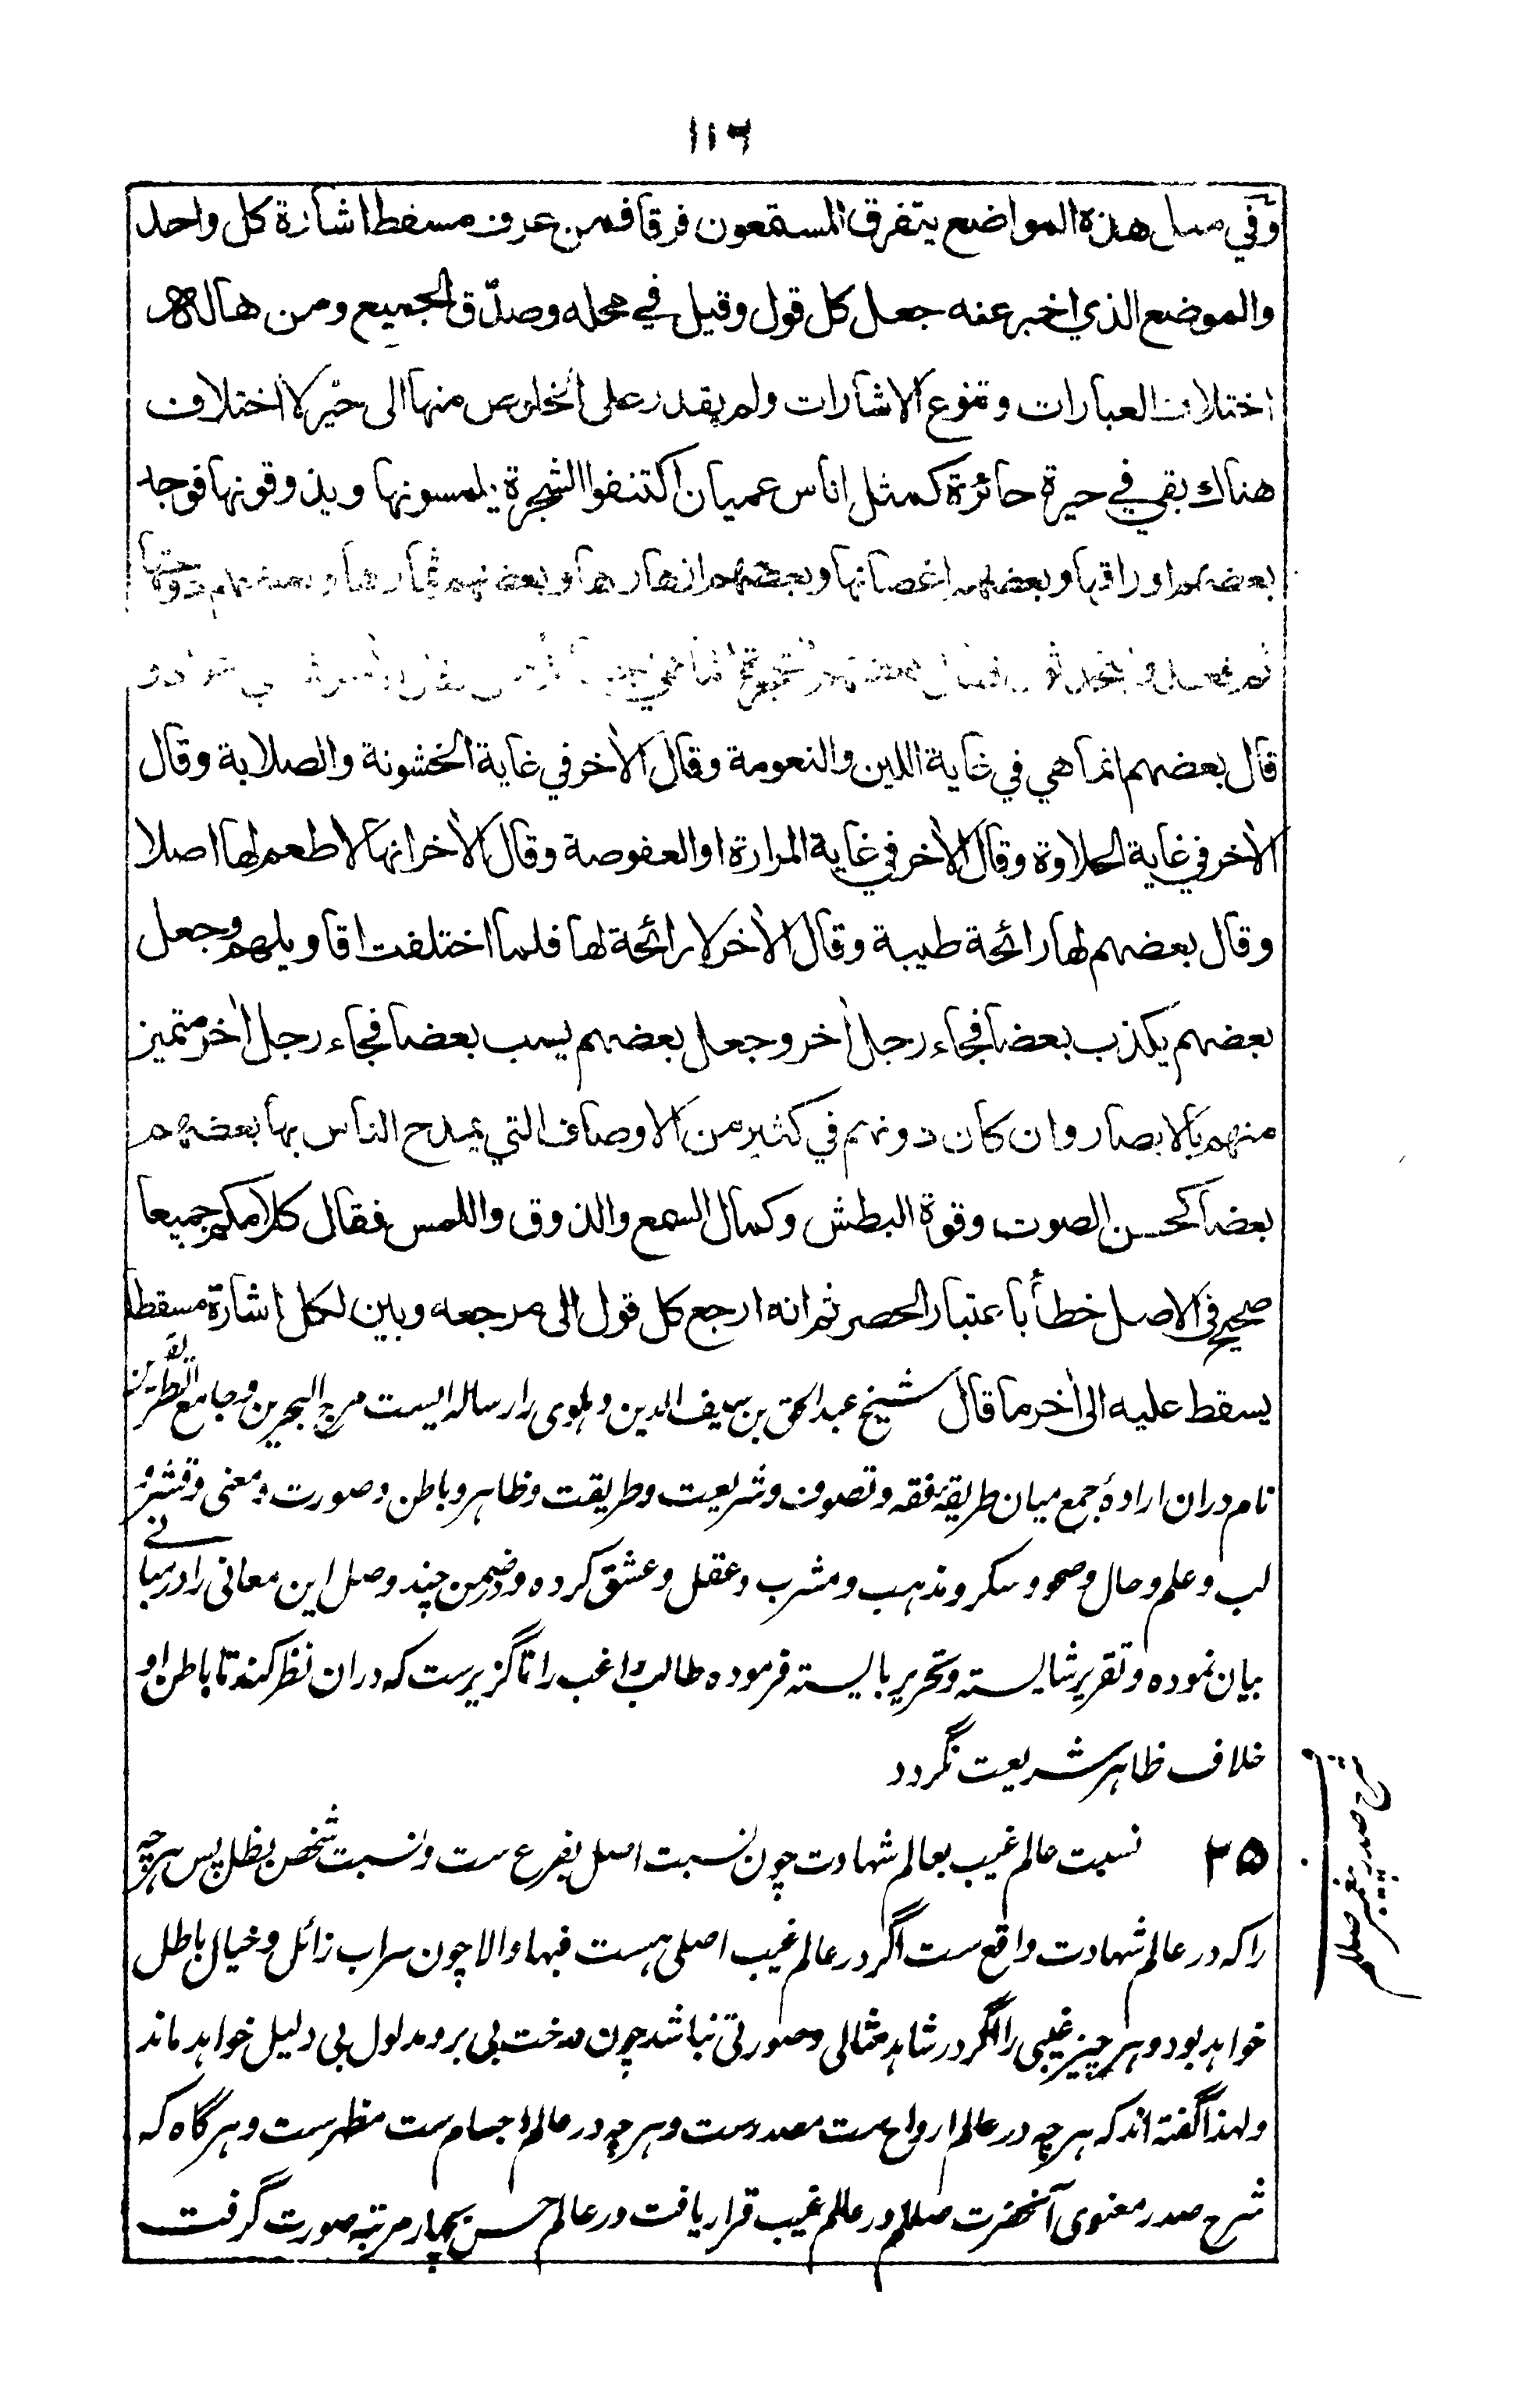 ۱۱۶
وفي مثل هذه المواضع يتفرق المستمعون فرقا فمن عرف مسقط اشارة كل واحد
والموضع الذي اخبر عنه جعل كل قول وقيل في محله وصدّق الجميع ومن هاله
اختلاف العبارات وتنوع الاشارات ولم يقدر على الخلوص منها الى حيّز لا اختلاف
هناك بقي في حيرة حائرة كمثل اناس عميان اكتنفوا الشجرة يلمسونها ويذوقونها فوجد
بعضهم اوراقها وبعضهم اغصانها وبعضهم ازهارها وبعضهم ثمارها وبعضهم دوحتها
قال بعضهم انما هي في غاية اللين والنعومة وقال الأخر في غاية الخشونة والصلابة وقال
الأخر في غاية الحلاوة وقال الأخر في غاية المرارة او العفوصة وقال الأخر انها لا طعم لها اصلا
وقال بعضهم لها رائحة طيبة وقال الأخر لا رائحة لها فلما اختلفت اقاويلهم وجعل
بعضهم يكذب بعضا فجاء رجل أخر وجعل بعضهم يسب بعضا فجاء رجل أخر متميز
منهم بالابصار وان كان دونهم في كثير من الاوصاف التي يمدح الناس بها بعضهم
بعضا كحسن الصوت وقوة البطش وكمال السمع والذوق واللمس فقال كلامكم جميعا
صحيح في الاصل خطأ باعتبار الحصر ثم انه ارجع كل قول الى مرجعه وبين لكل اشارة مسقطا
يسقط عليه الى أخر ما قال شيخ عبد الحق بن سيف الدين دهلوى را رساله ايست مرج البحرين وجامع الطريقين
نام دران ارادهٔ جمع ميان طريقهٔ فقه و تصوف و شريعت و طريقت و ظاهر و باطن و صورت و معنى و قشر و
لب و علم و حال و صحو و سكر و مذهب و مشرب و عقل و عشق كرده و در ضمن چند وصل اين معانى را در مبانى
بيان نموده و تقرير شايسته و تحرير بايسته فرموده طالب راغب را ناگزيرست كه دران نظر كند تا باطن او
خلاف ظاهر شريعت نگردد
۳۵ نسبت عالم غيب بعالم شهادت چون نسبت اصل بفرع ست و نسبت شخص بظل پس هرچه
را كه در عالم شهادت واقع ست اگر در عالم غيب اصلى هست فبها والا چون سراب زائل و خيال باطل
خواهد بود و هر چيز غيبى را اگر در شاهد مثالى و صورتى نباشد چون درخت بى بر و مدلول بى دليل خواهد ماند
ولهذا گفته اند كه هرچه در عالم ارواح ست مصدرست و هرچه در عالم اجسام ست مظهرست و هرگاه كه
شرح صدر معنوى آنحضرت صللم در عالم غيب قرار يافت در عالم حس بچهار مرتبه صورت گرفت
شرح صدر پيغمبر صللم